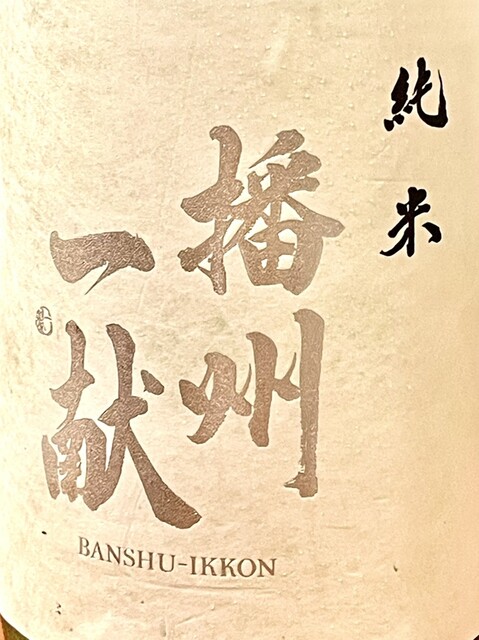 純米
播州
一献
BANSHU-IKKON